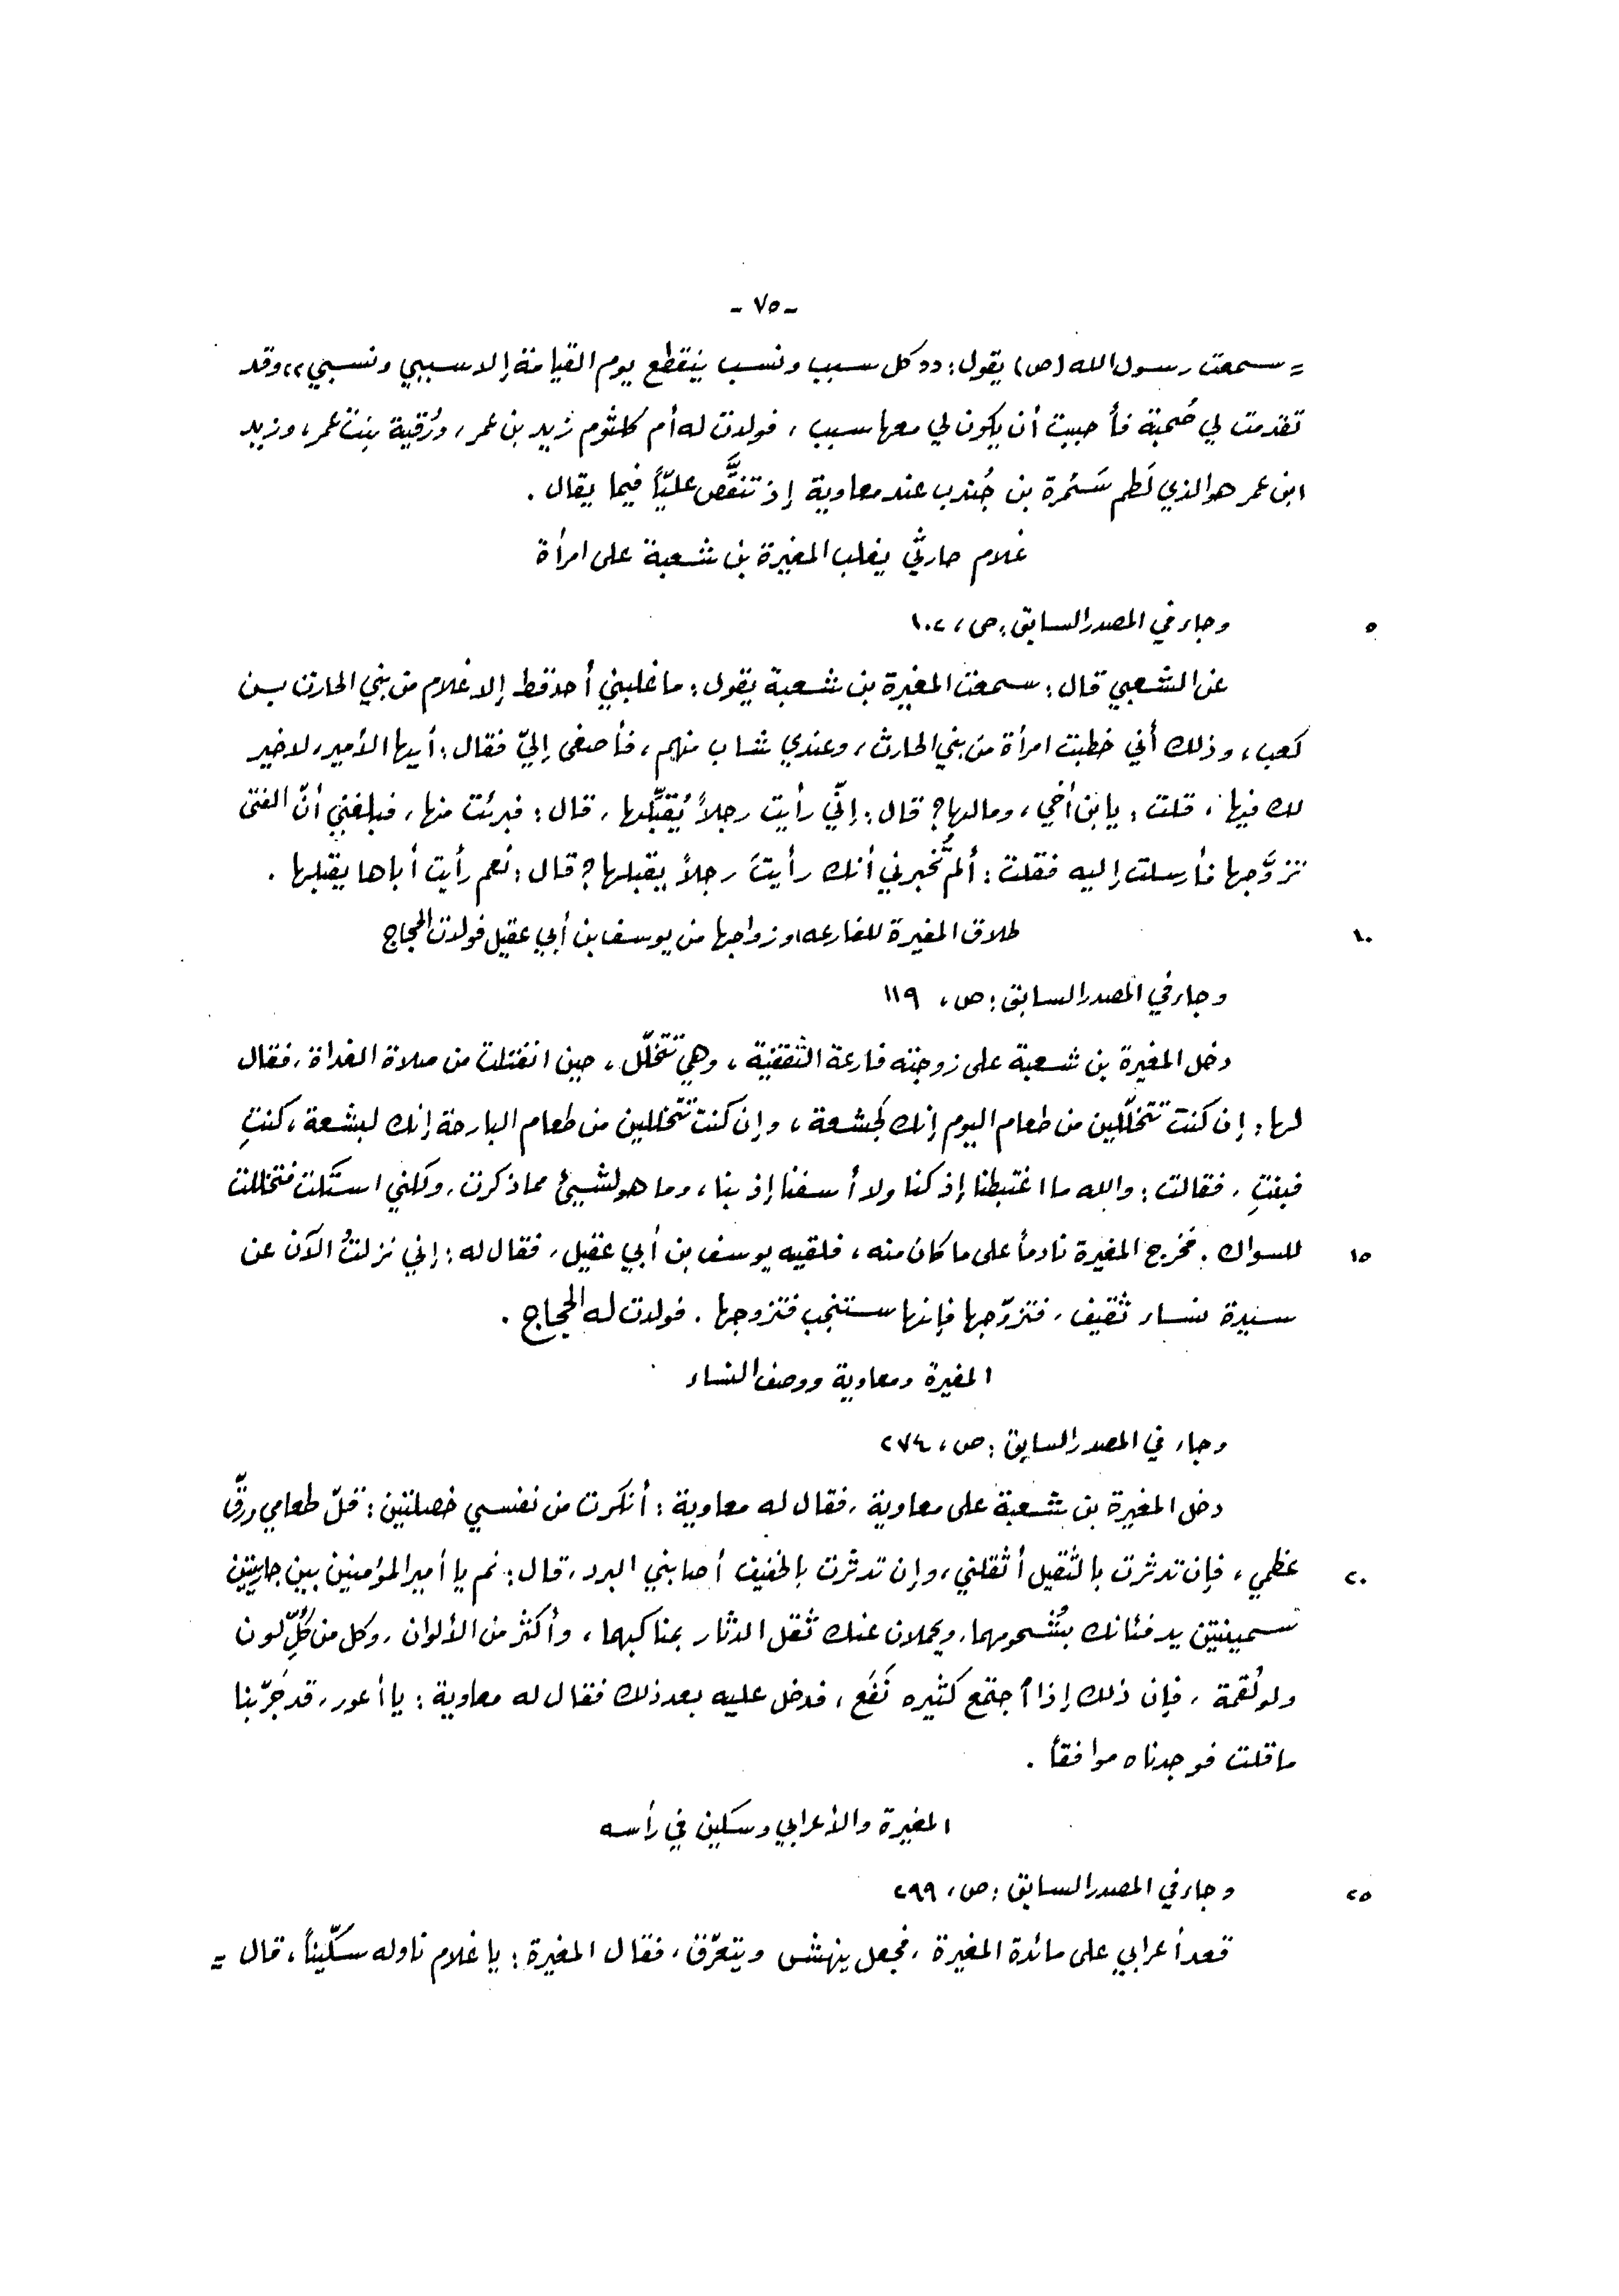 - ٧٥ -
= سمعت رسول الله (ص) يقول: «كل سبب ونسب ينقطع يوم القيامة إلا سببي ونسبي» وقد
تقدمت لي صُحبة فأحببت أن يكون لي معها سبب، فولدت له أم كلثوم زيد بن عمر، ورُقية بنت عمر، وزيد
ابن عمر هو الذي لَطم سَمُرة بن جُندب عند معاوية إذ تنقَّص عليّاً فيما يقال.
غلام حارثي يغلب المغيرة بن شعبة على امرأة
٥ وجاء في المصدر السابق: ص، ١٠٢
عن الشعبي قال: سمعت المغيرة بن شعبة يقول: ما غلبني أحد قط إلا غلام من بني الحارث بن
كعب، وذلك أني خطبت امرأة من بني الحارث، وعندي شاب منهم، فأصغى إليّ فقال: أيها الأمير، لا خير
لك فيها، قلت: يا بن أخي، وما لها؟ قال: إنّي رأيت رجلاً يُقبِّلها، قال: فبرئت منها، فبلغني أنّ الفتى
تزوَّجها فأرسلت إليه فقلت: ألم تُخبرني أنك رأيتَ رجلاً يقبلها؟ قال: نعم رأيت أباها يقبلها.
١٠ طلاق المغيرة للفارعه، وزواجها من يوسف بن أبي عقيل فولدت الحجاج
وجاء في المصدر السابق: ص، ١١٩
دخل المغيرة بن شعبة على زوجته فارعة الثقفيّة، وهي تتخلّل، حين انفتلت من صلاة الغداة، فقال
لها: إن كنت تتخلّلين من طعام اليوم إنك لجشعة، وإن كنت تتخللين من طعام البارحة إنك لبشعة، كنتِ
فبنتِ، فقالت: والله ما اغتبطنا إذ كنا ولا أسفنا إذ بنا، وما هو لشيئ مما ذكرت، ولكني استكت فتخللت
١٥ للسواك. فخرج المغيرة نادماً على ما كان منه، فلقيه يوسف بن أبي عقيل، فقال له: إني نزلتُ الآن عن
سيدة نساء ثقيف، فتزوّجها فإنها ستنجب فتزوجها. فولدت له الحجاج.
المغيرة ومعاوية ووصف النساء
وجاء في المصدر السابق: ص، ٢٧٤
دخل المغيرة بن شعبة على معاوية، فقال له معاوية: أنكرت من نفسي خصلتين: قلّ طعامي ورقّ
٢٠ عظمي، فإن تدثرت بالثّقيل أثقلني، وإن تدثرت بالخفيف أصابني البرد، قال: نم يا أمير المؤمنين بين جاريتين
سمينتين يدفئانك بشُحومهما، ويحملان عنك ثقل الدثار بمناكبهما، وأكثر من الألوان، وكل من كُلّ لون
ولو لُقمة، فإن ذلك إذا أجتمع كثيره نَفَع، فدخل عليه بعد ذلك فقال له معاوية: يا أعور، قد جَرّبنا
ما قلت فوجدناه موافقاً.
المغيرة والأعرابي وسكين في رأسه
٢٥ وجاء في المصدر السابق: ص، ٢٩٩
قعد أعرابي على مائدة المغيرة، فجعل ينهش ويتعرّق، فقال المغيرة: يا غلام ناوله سكّيناً، قال =